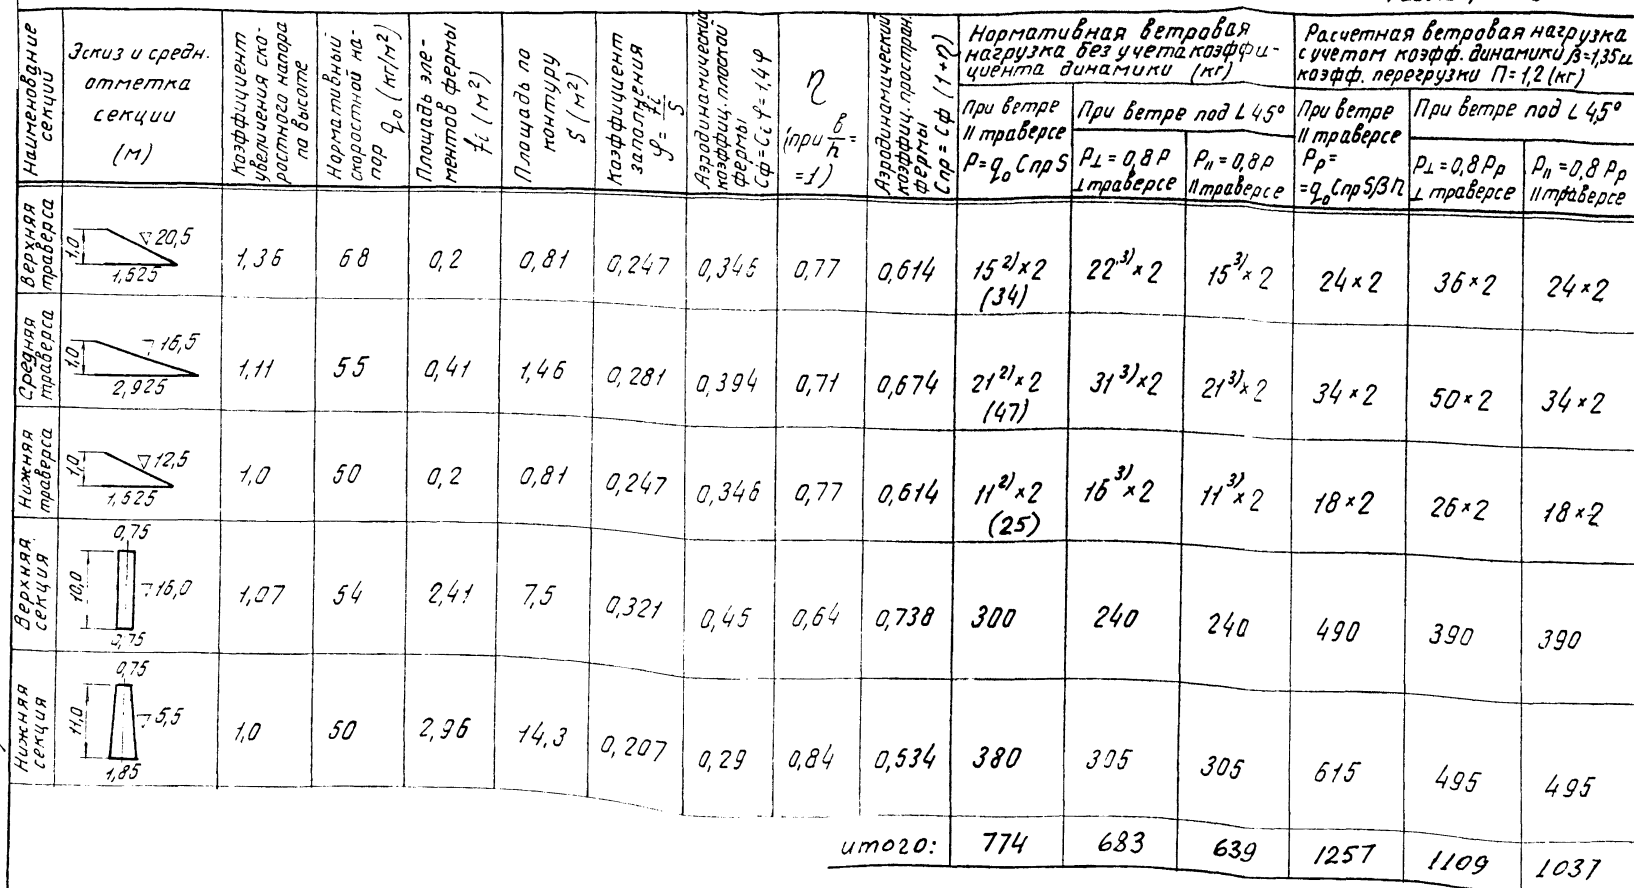 Наименование секции
Эскиз и средн. отметка секции (м)
Коэффициент увеличения скоростного напора по высоте
Нормативный скоростной напор q₀ (кг/м²)
Площадь элементов фермы fi (м²)
Площадь по контуру S (м²)
Коэффициент заполнения φ = fi/S
Аэродинамический коэффиц. плоской фермы Cф=Ci φ=1,4φ
η (при в/h = =1)
Аэродинамический коэффиц. простран. фермы Cпр = Cф (1+η)
Нормативная ветровая нагрузка без учета коэффициента динамики (кг)
При ветре || траверсе P=q₀ Cпр S
При ветре под ∠ 45°
P⊥ = 0,8 P ⊥ траверсе
P|| = 0,8 P || траверсе
Расчетная ветровая нагрузка с учетом коэфф. динамики β=1,35 и коэфф. перегрузки П=1,2 (кг)
При ветре || траверсе Pр= =q₀ Cпр S β п
При ветре под ∠ 45°
P⊥=0,8 Pр ⊥ траверсе
P|| =0,8 Pр || траверсе
Верхняя траверса 1,0 20,5 1,525 1,36 68 0,2 0,81 0,247 0,346 0,77 0,614 15²⁾×2 (34) 22³⁾×2 15³⁾×2 24×2 36×2 24×2
Средняя траверса 1,0 16,5 2,925 1,11 55 0,41 1,46 0,281 0,394 0,71 0,674 21²⁾×2 (47) 31³⁾×2 21³⁾×2 34×2 50×2 34×2
Нижняя траверса 1,0 12,5 1,525 1,0 50 0,2 0,81 0,247 0,346 0,77 0,614 11²⁾×2 (25) 16³⁾×2 11³⁾×2 18×2 26×2 18×2
Верхняя секция 0,75 10,0 16,0 0,75 1,07 54 2,41 7,5 0,321 0,45 0,64 0,738 300 240 240 490 390 390
Нижняя секция 0,75 11,0 5,5 1,85 1,0 50 2,96 14,3 0,207 0,29 0,84 0,534 380 305 305 615 495 495
итого: 774 683 639 1257 1109 1037